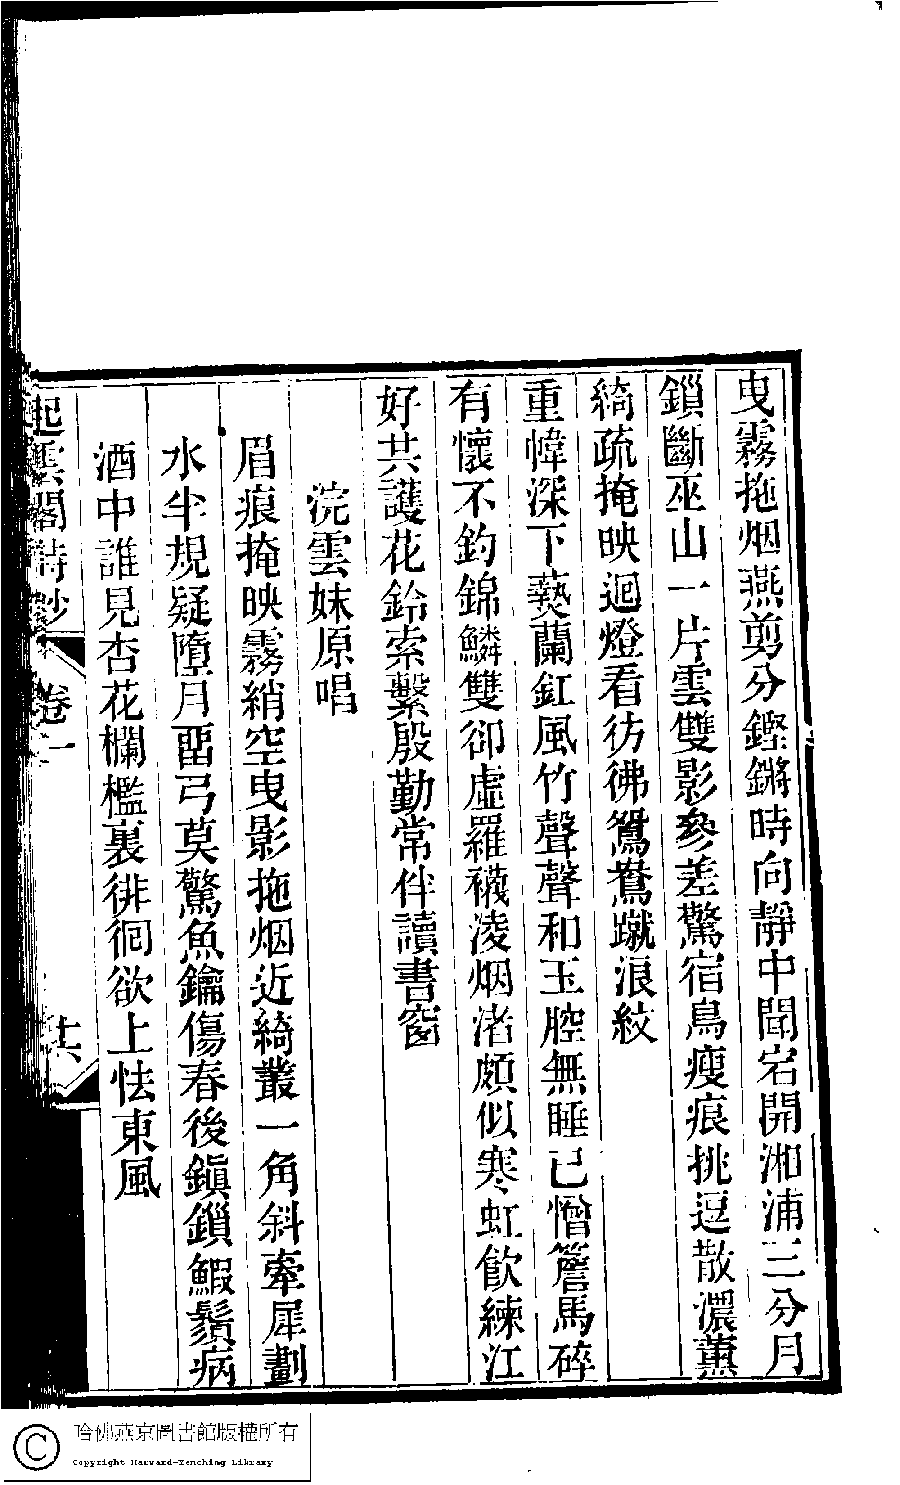 曳霧拖烟燕剪分鏗鏘時向靜中聞宕開湘浦三分月
鎖斷巫山一片雲雙影參差驚宿鳥瘦痕挑逗散濃薰
綺疏掩映迴燈看彷彿鴛鴦蹴浪紋
重幃深下爇蘭釭風竹聲聲和玉腔無睡已憎簷馬碎
有懷不釣錦鱗雙卻虛羅襪淩烟渚頗似寒虹飲練江
好共護花鈴索繫殷勤常伴讀書窗
浣雲妹原唱
眉痕掩映霧綃空曳影拖烟近綺叢一角斜牽犀劃
水半規疑墮月畱弓莫驚魚鑰傷春後鎭鎖鰕鬚病
酒中誰見杏花欄檻裏徘徊欲上怯東風
起雲閣詩鈔
卷一
共
哈佛燕京圖書館版權所有
Copyright Harvard-Yenching Library